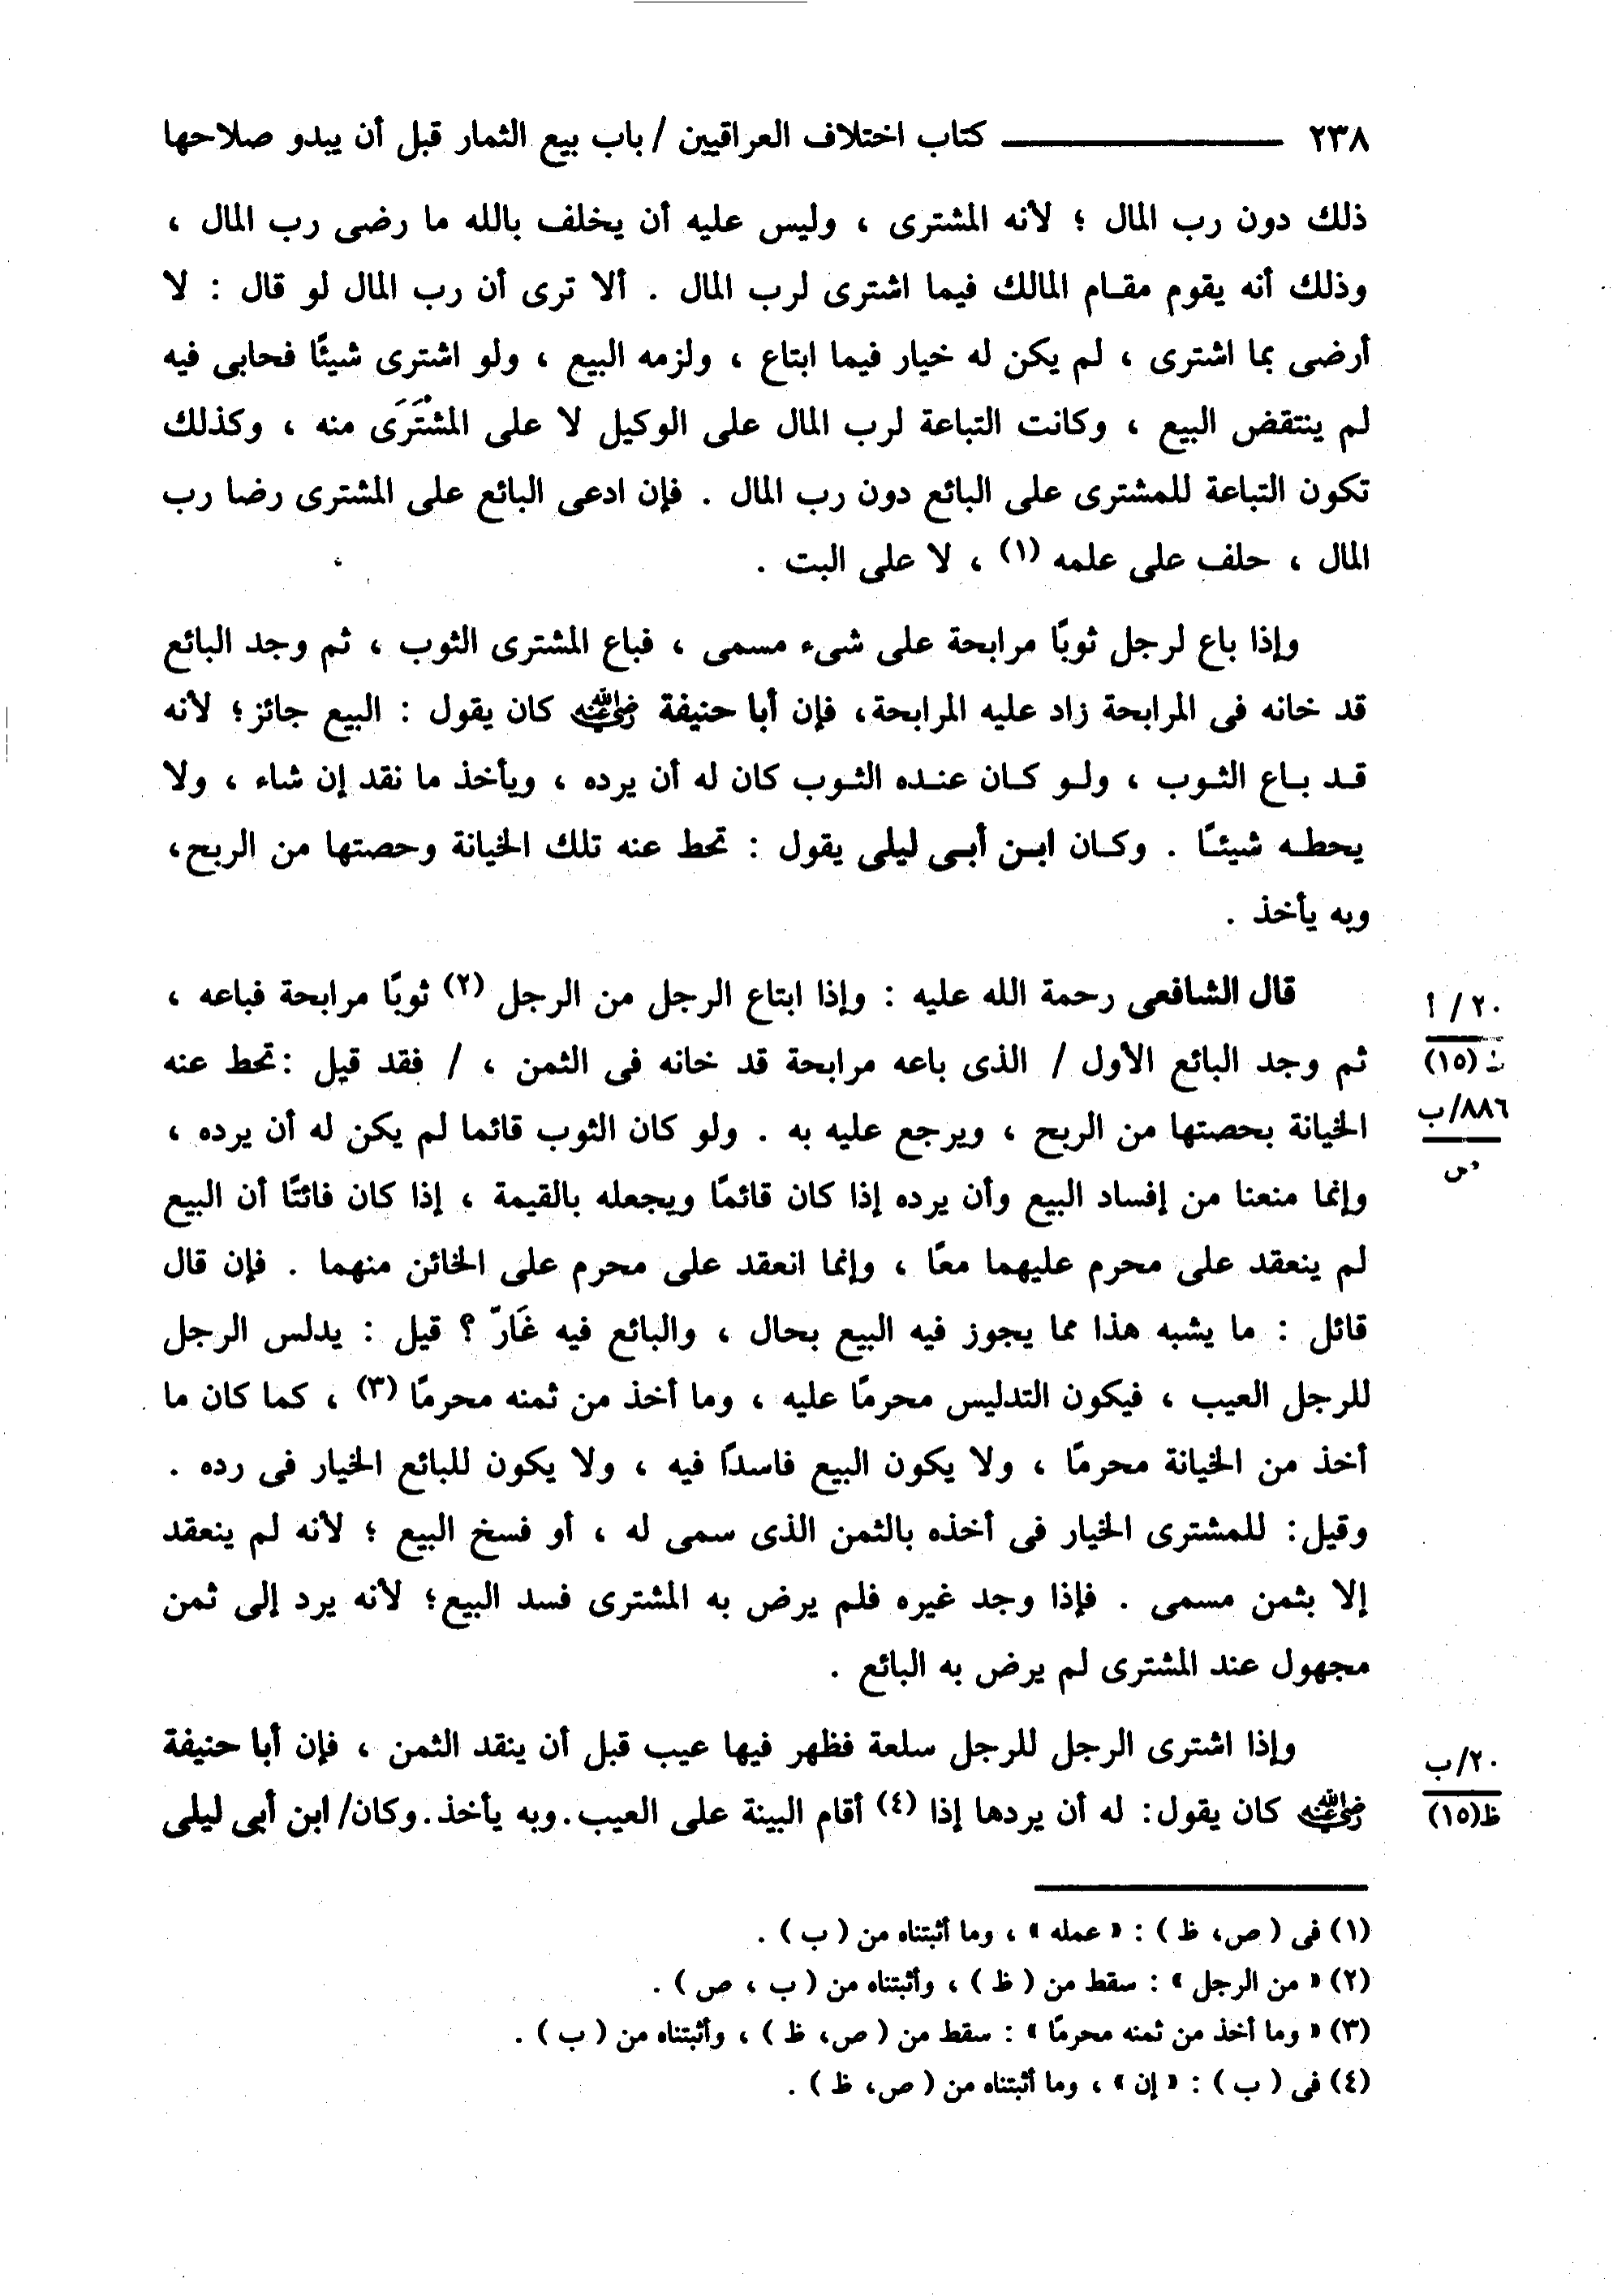 ٢٣٨ ــــــــــــــــ كتاب اختلاف العراقيين / باب بيع الثمار قبل أن يبدو صلاحها
ذلك دون رب المال ؛ لأنه المشترى ، وليس عليه أن يخلف بالله ما رضى رب المال ،
وذلك أنه يقوم مقام المالك فيما اشترى لرب المال . ألا ترى أن رب المال لو قال : لا
أرضى بما اشترى ، لم يكن له خيار فيما ابتاع ، ولزمه البيع ، ولو اشترى شيئًا فحابى فيه
لم ينتقض البيع ، وكانت التباعة لرب المال على الوكيل لا على المشْتَرَى منه ، وكذلك
تكون التباعة للمشترى على البائع دون رب المال . فإن ادعى البائع على المشترى رضا رب
المال ، حلف على علمه (١) ، لا على البت .
وإذا باع لرجل ثوبًا مرابحة على شىء مسمى ، فباع المشترى الثوب ، ثم وجد البائع
قد خانه فى المرابحة زاد عليه المرابحة، فإن أبا حنيفة رضي الله عنه كان يقول : البيع جائز؛ لأنه
قد باع الثوب ، ولو كان عنده الثوب كان له أن يرده ، ويأخذ ما نقد إن شاء ، ولا
يحطه شيئًا . وكان ابن أبى ليلى يقول : تحط عنه تلك الخيانة وحصتها من الربح،
وبه يأخذ .
قال الشافعى رحمة الله عليه : وإذا ابتاع الرجل من الرجل (٢) ثوبًا مرابحة فباعه ،
٢٠ / أ
ثم وجد البائع الأول / الذى باعه مرابحة قد خانه فى الثمن ، / فقد قيل :تحط عنه
(١٥)
الخيانة بحصتها من الربح ، ويرجع عليه به . ولو كان الثوب قائما لم يكن له أن يرده ،
٨٨٦/ب
وإنما منعنا من إفساد البيع وأن يرده إذا كان قائمًا ويجعله بالقيمة ، إذا كان فائتًا أن البيع
ص
لم ينعقد على محرم عليهما معًا ، وإنما انعقد على محرم على الخائن منهما . فإن قال
قائل : ما يشبه هذا مما يجوز فيه البيع بحال ، والبائع فيه غَارّ ؟ قيل : يدلس الرجل
للرجل العيب ، فيكون التدليس محرمًا عليه ، وما أخذ من ثمنه محرمًا (٣) ، كما كان ما
أخذ من الخيانة محرمًا ، ولا يكون البيع فاسدًا فيه ، ولا يكون للبائع الخيار فى رده .
وقيل: للمشترى الخيار فى أخذه بالثمن الذى سمى له ، أو فسخ البيع ؛ لأنه لم ينعقد
إلا بثمن مسمى . فإذا وجد غيره فلم يرض به المشترى فسد البيع؛ لأنه يرد إلى ثمن
مجهول عند المشترى لم يرض به البائع .
وإذا اشترى الرجل للرجل سلعة فظهر فيها عيب قبل أن ينقد الثمن ، فإن أبا حنيفة
٢٠/ب
رضي الله عنه كان يقول: له أن يردها إذا (٤) أقام البينة على العيب.وبه يأخذ.وكان/ ابن أبى ليلى
ظ(١٥)
(١) فى ( ص، ظ ) : « عمله » ، وما أثبتناه من ( ب ) .
(٢) « من الرجل » : سقط من ( ظ ) ، وأثبتناه من ( ب ، ص ) .
(٣) « وما أخذ من ثمنه محرمًا » : سقط من ( ص، ظ ) ، وأثبتناه من ( ب ) .
(٤) فى ( ب ) : « إن » ، وما أثبتناه من ( ص، ظ ) .